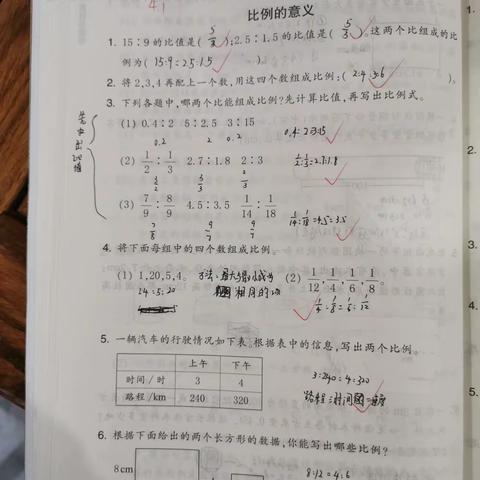 比例的意义
1. 15∶9的比值是( 5/3 ),2.5∶1.5的比值是( 5/3 ),这两个比组成的比
例为( 15:9=2.5:1.5 )。
2. 将2,3,4再配上一个数,用这四个数组成比例:( 2:4=3:6 )。
3. 下列各题中,哪两个比能组成比例?先计算比值,再写出比例式。
(1) 0.4∶2 5∶2.5 3∶15
0.2 2 0.2 0.4:2=3:15
(2) 1/2∶1/3 2.7∶1.8 2∶3
3/2 3/2 2/3 1/2:1/3=2.7:1.8
(3) 7/9∶8/9 4.5∶3.5 1/14∶1/18
7/8 9/7 9/7 1/14:1/18=4.5:3.5
4. 将下面每组中的四个数组成比例。
(1) 1,20,5,4。 (2) 1/12,1/4,1/6,1/8。
相同的
1/4:1/8=1/6:1/12
5. 一辆汽车的行驶情况如下表,根据表中的信息,写出两个比例。
上午 下午
时间/时 3 4
路程/km 240 320
3:240=4:320
路程:时间=速度
6. 根据下面给出的两个长方形的数据,你能写出哪些比例?
8cm
8:12=4:6